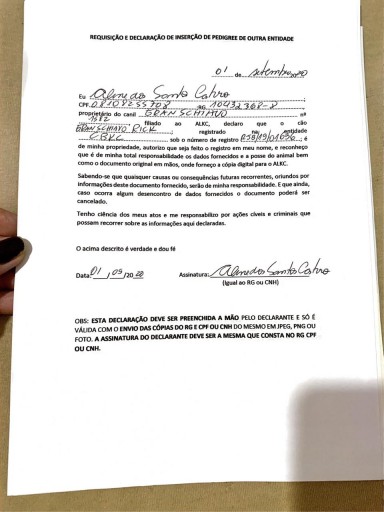 REQUISIÇÃO E DECLARAÇÃO DE INSERÇÃO DE PEDIGREE DE OUTRA ENTIDADE
01 de setembro
Eu
CPF: RG 10432368-8
proprietário do canil GRAN SCHIMID nº
1582 filiado ao ALKC, declaro que o cão
RICK registrado na entidade
CBKC sob o número de registro , é
de minha propriedade, autorizo que seja feito o registro em meu nome, e reconheço
que é de minha total responsabilidade os dados fornecidos e a posse do animal bem
como o documento original em mãos, onde forneço a cópia digital para o ALKC.
Sabendo-se que quaisquer causas ou consequências futuras recorrentes, oriundos por
informações deste documento fornecido, serão de minha responsabilidade. E que ainda,
caso ocorra algum desencontro de dados fornecidos o documento poderá ser
cancelado.
Tenho ciência dos meus atos e me responsabilizo por ações cíveis e criminais que
possam recorrer sobre as informações aqui declaradas.
O acima descrito é verdade e dou fé
Data: 01 / 09 /20 20 Assinatura:
(Igual ao RG ou CNH)
OBS: ESTA DECLARAÇÃO DEVE SER PREENCHIDA A MÃO PELO DECLARANTE E SÓ É
VÁLIDA COM O ENVIO DAS CÓPIAS DO RG E CPF OU CNH DO MESMO EM JPEG, PNG OU
FOTO. A ASSINATURA DO DECLARANTE DEVE SER A MESMA QUE CONSTA NO RG CPF
OU CNH.